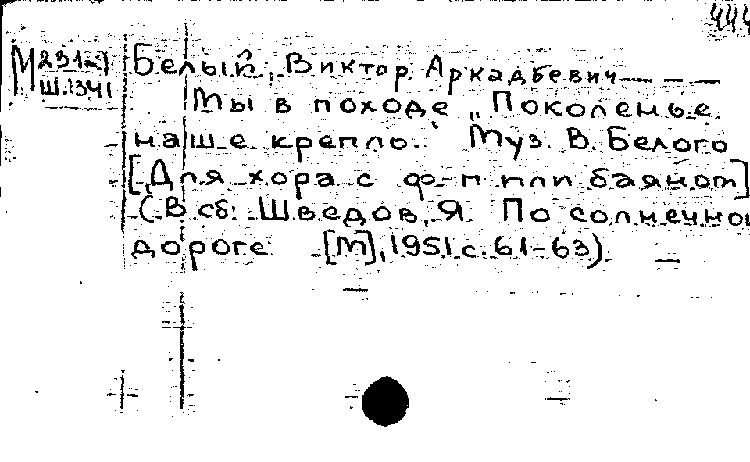 444
М 231а)
Ш.1341
Белый, Виктор Аркадьевич —
Мы в походе „Поколенье
наше крепло.“ Муз. В. Белого
[Для хора с ф-п или баяном]
(В сб: Шведов, Я. По солнечной
дороге [М], 1951 с. 61-63).